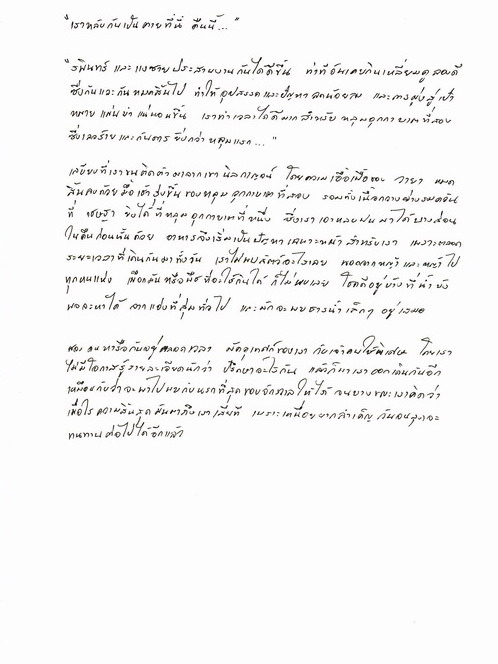 "เราหลับกันเป็นตายที่นี่ คืนนี้..."
"รพินทร์ และแงซายประสานงานกันได้ดีขึ้น ท่าทีอันเคยกินเหลี่ยมดูลองดี
ซึ่งกันและกันหมดสิ้นไป ทำให้อุปสรรคและปัญหาลดน้อยลง และการมุ่งสู่เป้า
หมายแม่นยำ แน่นอนขึ้น เราทำเวลาได้ดีมากสำหรับ หลุมอุกกาบาตที่สอง
ซึ่งเลวร้ายและกันดาร ยิ่งกว่า หลุมแรก..."
เสบียงที่เราขนติดตัวมาจาก โดยความเอื้อเฟื้อของ วายา หมด
สิ้นลงด้วยมื้อเช้ารุ่งขึ้นของหลุมอุกกาบาตที่สอง รวมทั้งเนื้อกวางย่างรมควัน
ที่ เชษฐา ยิงได้ที่หลุมอุกกาบาตที่หนึ่ง ซึ่งเราเอา มาได้บางส่วน
ในคืนก่อนนั้นด้วย อาหารจึงเริ่มเป็นปัญหาเฉพาะหน้าสำหรับเรา เพราะตลอด
ระยะเวลาที่เดินกันมาทั้งวัน เราไม่พบสัตว์อะไรเลย นอกจากหญ้าและหญ้าไป
ทุกหนแห่ง เผือกมันหรือพืชที่จะใช้กินได้ ก็ไม่พบเลย โชคดีอยู่บ้างที่น้ำยัง
พอจะหาได้ จากแอ่งที่สุ่มทั่วไป และมักจะพบธารน้ำเล็กๆ อยู่เสมอ
สองคนหารือกันอยู่ตลอดเวลา มัคคุเทศก์ของเรา กับเจ้าคนใช้พิเศษ โดยเรา
ไม่มีโอกาสรู้รายละเอียดนักว่า ปรึกษาอะไรกัน แล้วก็พาเราออกเดินกันอีก
เหมือนกับว่าจะพาไปพบกับนรกที่สุดขอบจักรวาลให้ได้ จนบางขณะเราคิดว่า
เมื่อไรความสิ้นสุดมันมาถึงเราเสียที เพราะเหนื่อยยากลำเค็ญกันจนสุดจะ
ทนทานต่อไปได้อีกแล้ว